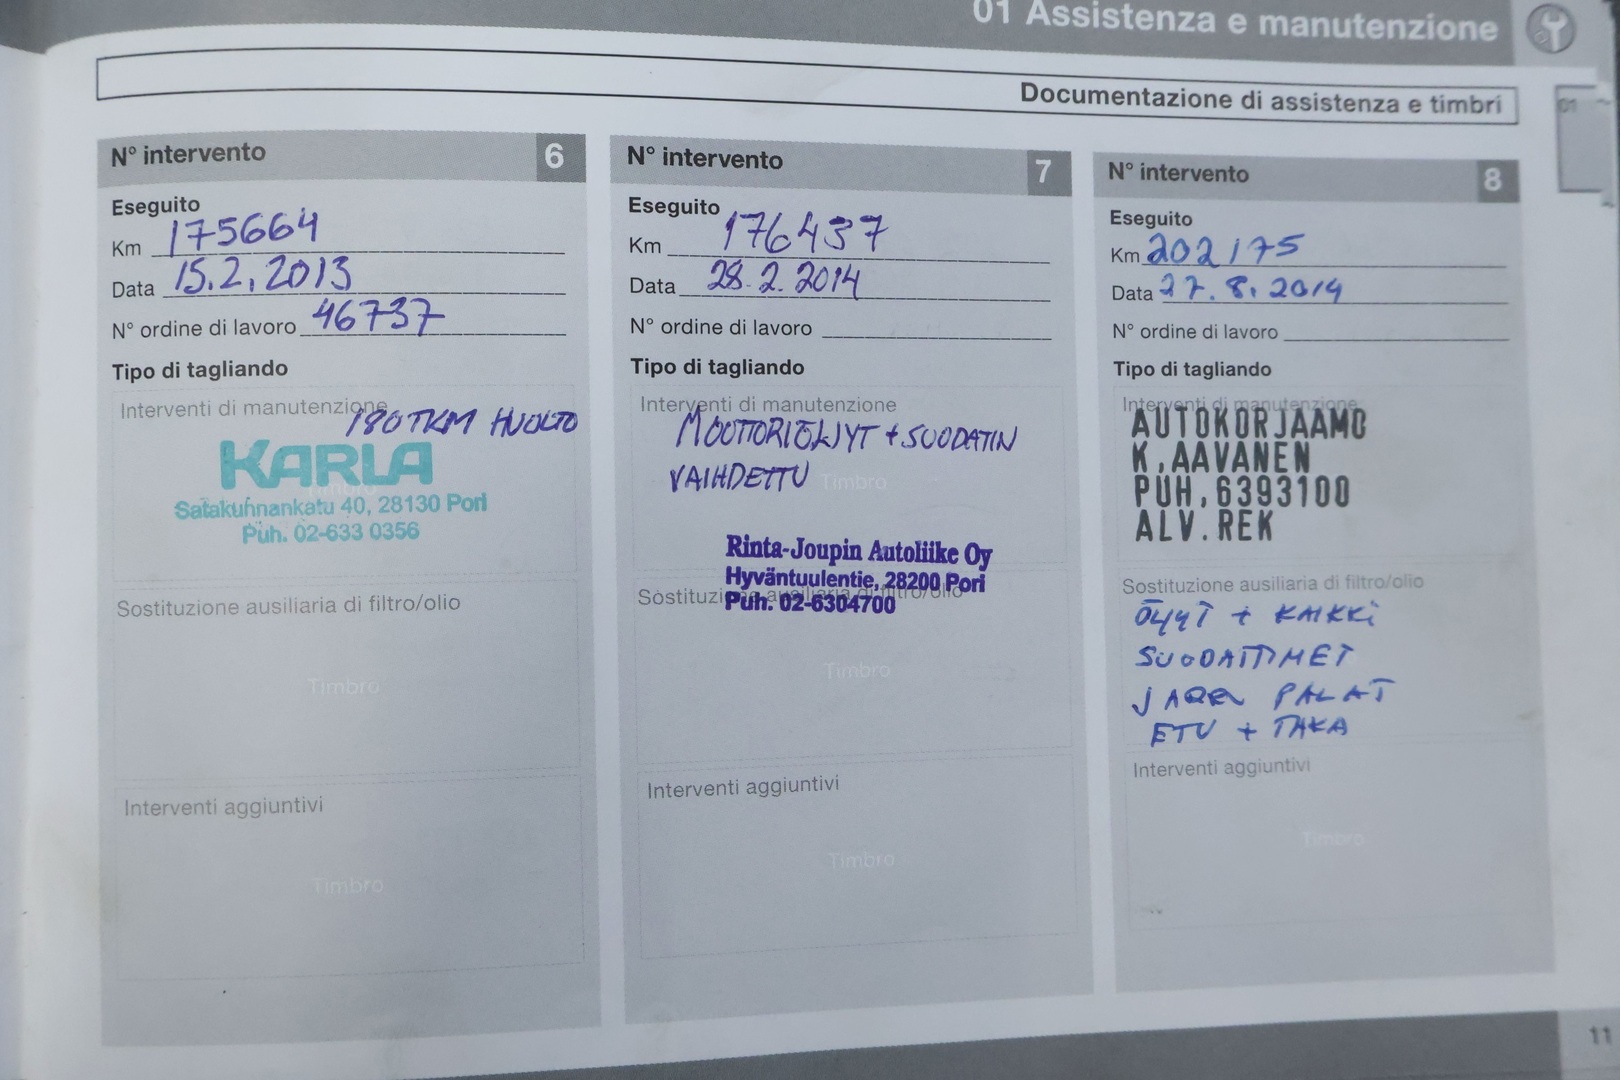 01 Assistenza e manutenzione
Documentazione di assistenza e timbri
01
N° intervento 6
Eseguito
Km 175664
Data 15.2.2013
N° ordine di lavoro 46737
Tipo di tagliando
Interventi di manutenzione
180 TKM HUOLTO
KARLA
Timbro
Satakunnankatu 40, 28130 Pori
Puh. 02-633 0356
Sostituzione ausiliaria di filtro/olio
Timbro
Interventi aggiuntivi
Timbro
N° intervento 7
Eseguito
Km 176437
Data 28.2.2014
N° ordine di lavoro
Tipo di tagliando
Interventi di manutenzione
MOOTTORIÖLJYT + SUODATIN
VAIHDETTU
Timbro
Rinta-Joupin Autoliike Oy
Hyväntuulentie, 28200 Pori
Sostituzione ausiliaria di filtro/olio
Puh. 02-6304700
Timbro
Interventi aggiuntivi
Timbro
N° intervento 8
Eseguito
Km 202175
Data 27.8.2014
N° ordine di lavoro
Tipo di tagliando
Interventi di manutenzione
AUTOKORJAAMO
K.AAVANEN
PUH.6393100
ALV.REK
Sostituzione ausiliaria di filtro/olio
ÖLJYT + KAIKKI
SUODATTIMET
JARRU PALAT
ETU + TAKA
Interventi aggiuntivi
Timbro
11